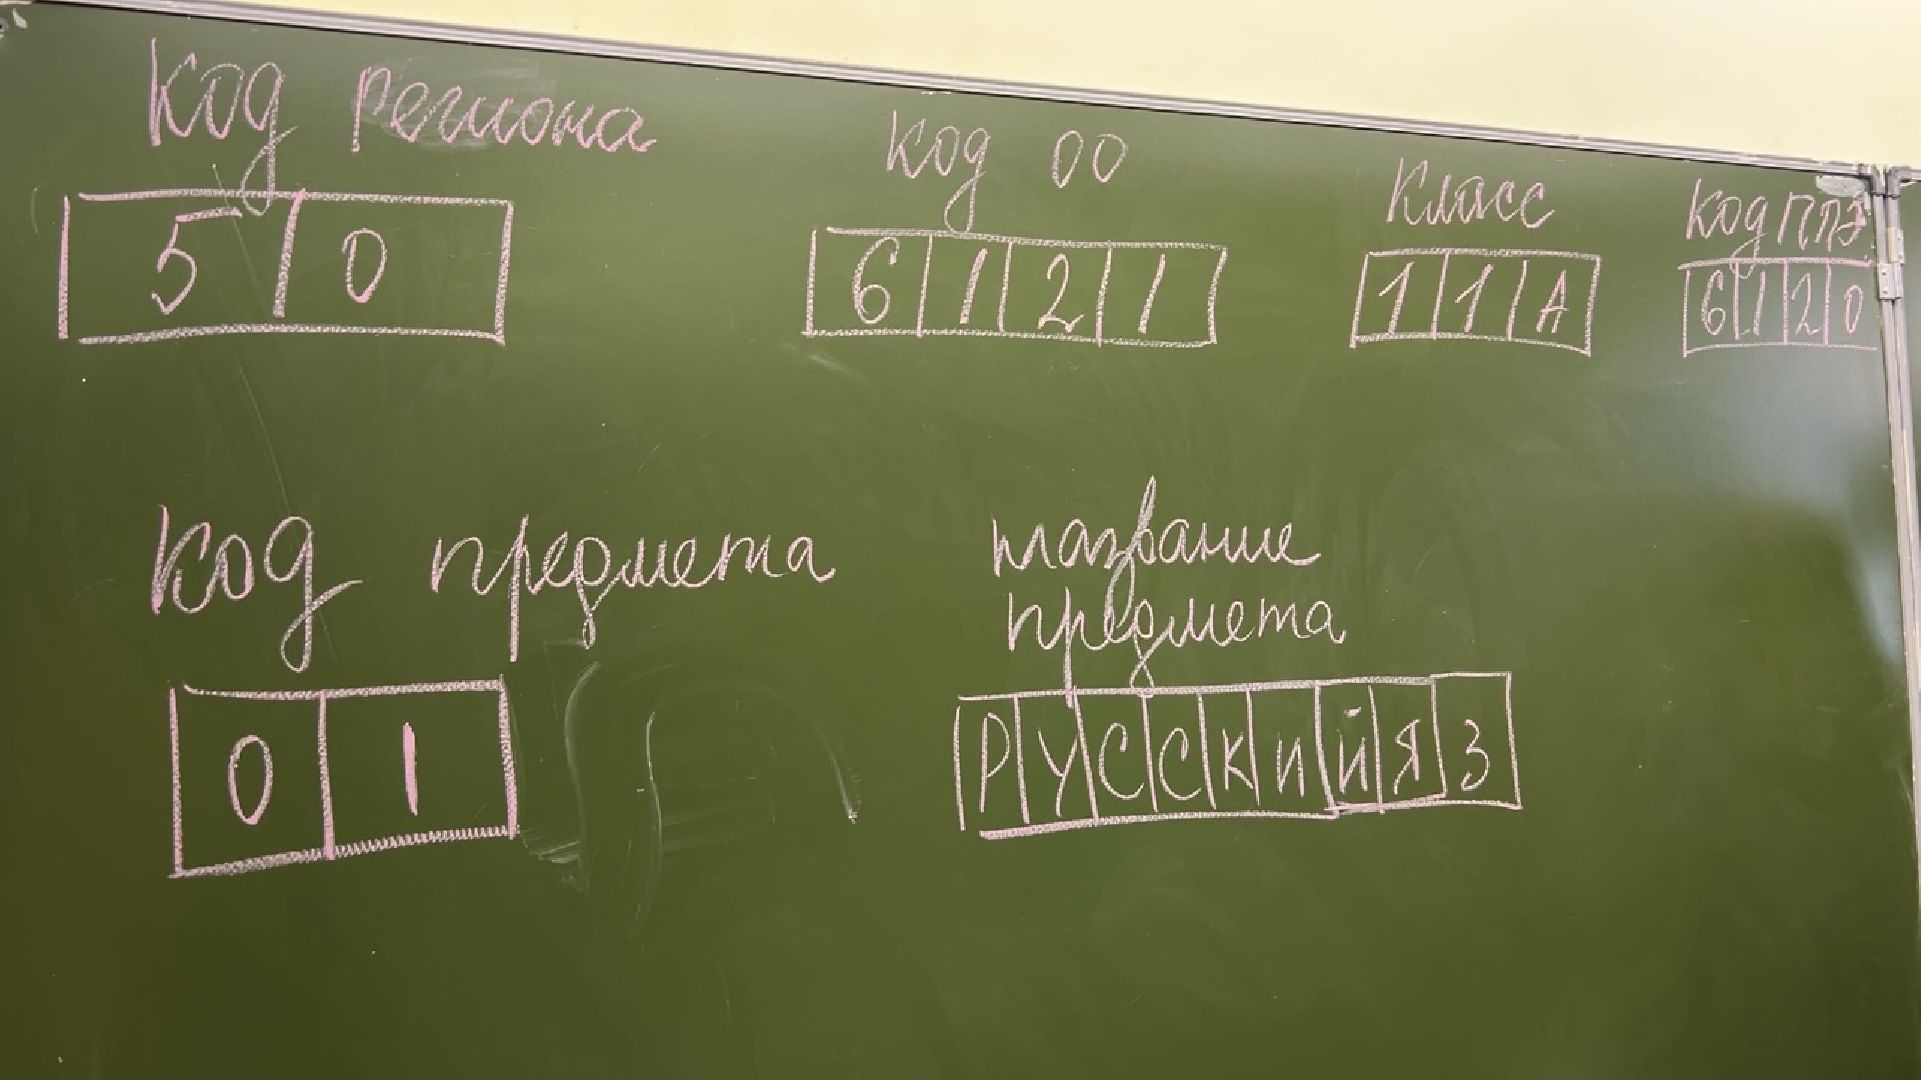 Код региона
50
Код ОО
6121
Класс
11А
Код ППЭ
6120
Код предмета
01
название
предмета
РУССКИЙЯЗ